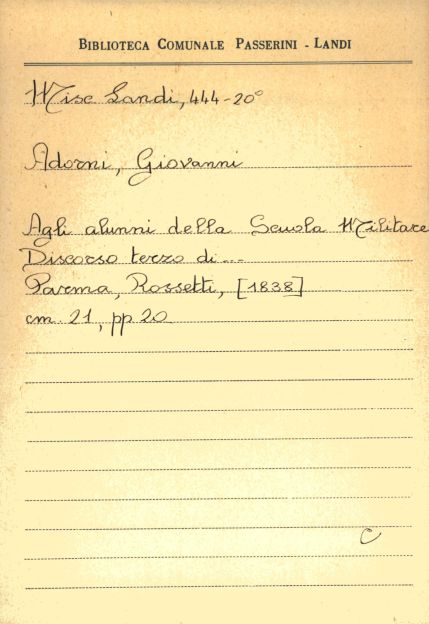 BIBLIOTECA COMUNALE PASSERINI - LANDI
Misc Landi, 444-20°
Adorni, Giovanni
Agli alunni della Scuola Militare
Discorso terzo di...
Parma, Rossetti, [1838]
cm. 21, pp 20
C